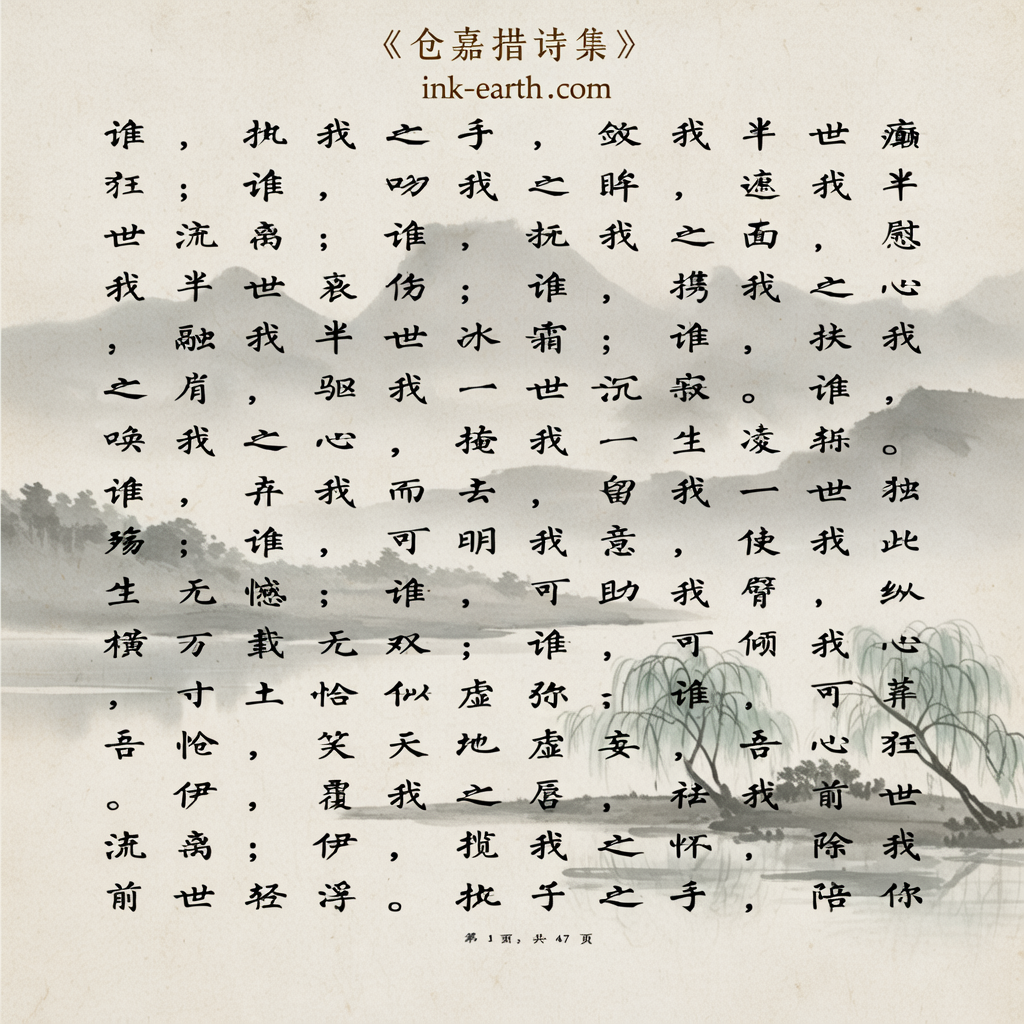 《仓嘉措诗集》
ink-earth.com
谁，执我之手，敛我半世癫
狂；谁，吻我之眸，遮我半
世流离；谁，抚我之面，慰
我半世哀伤；谁，携我之心
，融我半世冰霜；谁，扶我
之肩，驱我一世沉寂。谁，
唤我之心，掩我一生凌轹。
谁，弃我而去，留我一世独
殇；谁，可明我意，使我此
生无憾；谁，可助我臂，纵
横万载无双；谁，可倾我心
，寸土恰似虚弥；谁，可葬
吾怆，笑天地虚妄，吾心狂
。伊，覆我之唇，祛我前世
流离；伊，揽我之怀，除我
前世轻浮。执子之手，陪你
第 1 页，共 47 页